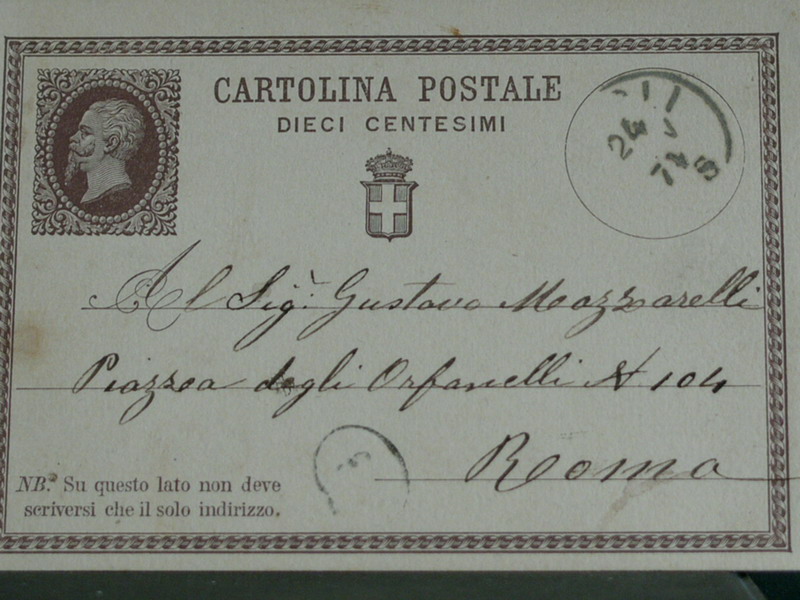 CARTOLINA POSTALE
DIECI CENTESIMI
24
V
74
S
Al Sigr. Gustavo Mazzarelli
Piazza degli Orfanelli N 104
Roma
NB. Su questo lato non deve
scriversi che il solo indirizzo.